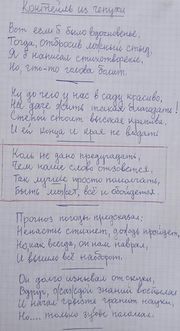 Коктейль из чепухи
Вот если б было вдохновенье,
Тогда, отбросив ложный стыд,
Я б написал стихотворенье,
Но, что-то голова болит.
Ну до чего у нас в саду красиво,
Не даже дочь такая благодать!
Стеной стоит высокая крапива
И ей конца и края не видать.
Коль не дано предугадать,
Чем наше слово отзовётся,
Так лучше просто помолчать,
Быть может, всё и обойдется
Прогноз погоды предсказал:
Ненастье сгинет, дождь пройдет,
Но как всегда, он нам наврал,
И вышло всё наоборот.
Он долго изнывал от скуки,
Вдруг, жаждой знаний воспылал
И начал грызть гранит науки,
Но.... только зубы поломал.